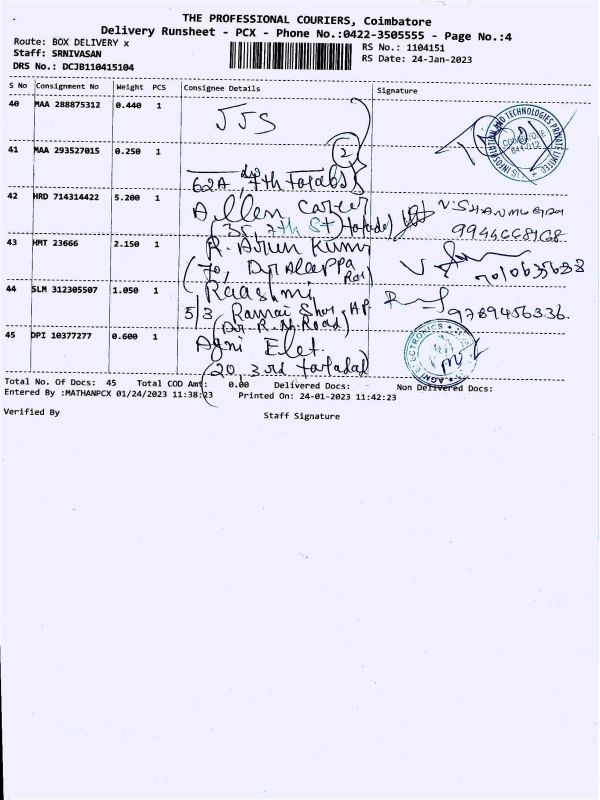 THE PROFESSIONAL COURIERS, Coimbatore
Delivery Runsheet - PCX - Phone No.:0422-3505555 - Page No.:4
Route: BOX DELIVERY x
RS No.: 1104151
Staff: SRNIVASAN
RS Date: 24-Jan-2023
DRS No.: DCJB110415104
S No Consignment No Weight PCS Consignee Details Signature
40 MAA 288875312 0.440 1 JJS
41 MAA 293527015 0.250 1 2
62A, 7th
42 HRD 714314422 5.200 1 Allen Career
(35, 7th St)
9944668168
43 HMT 23666 2.150 1 R. Arun Kumar
(70,
7010635638
44 SLM 312305507 1.050 1 Raashmi
5/3
9789456336.
45 DPI 10377277 0.600 1 Agni Elet.
(20, 3rd
AGNI ELECTRONICS
Total No. Of Docs: 45 Total COD Amt: 0.00 Delivered Docs: Non Delivered Docs:
Entered By :MATHANPCX 01/24/2023 11:38:23 Printed On: 24-01-2023 11:42:23
Verified By Staff Signature